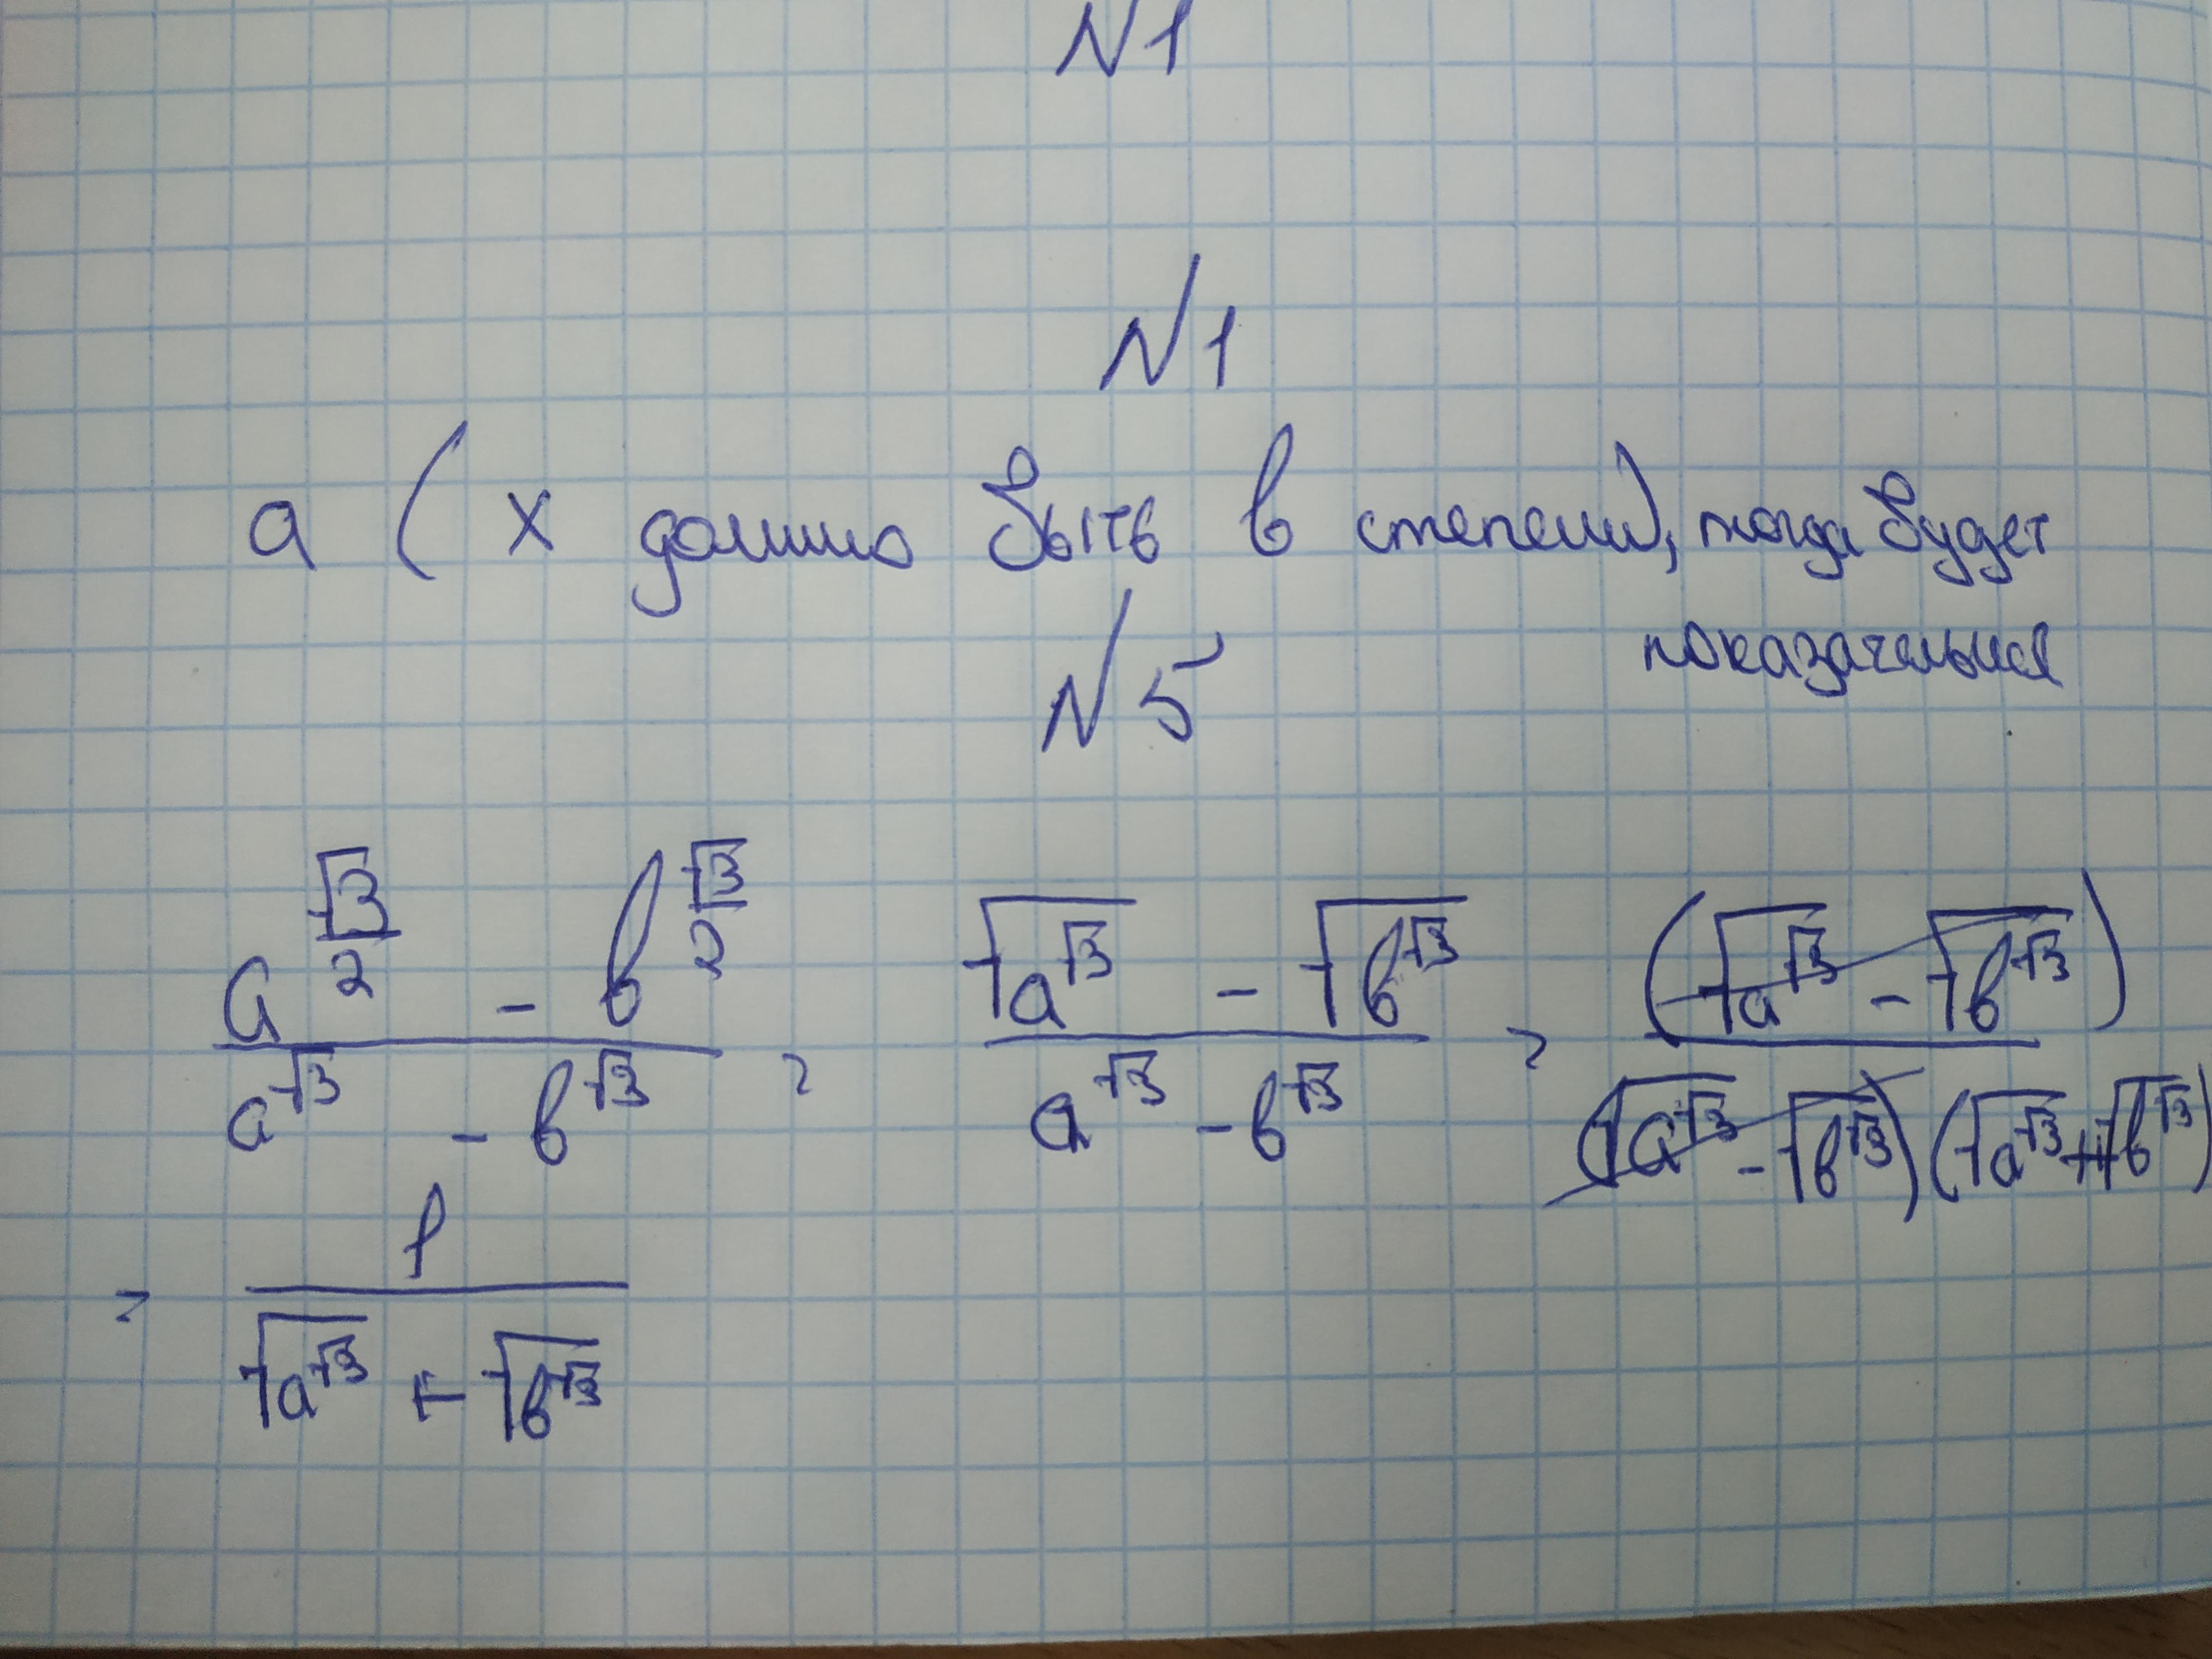 N1
N1
а ( х должно быть в степени), тогда будет
показательная
N5
a^(√3/2) - b^(√3/2) / a^√3 - b^√3 = √a^√3 - √b^√3 / a^√3 - b^√3 = (√a^√3 - √b^√3) / (√a^√3 - √b^√3)(√a^√3 + √b^√3)
= 1 / √a^√3 + √b^√3